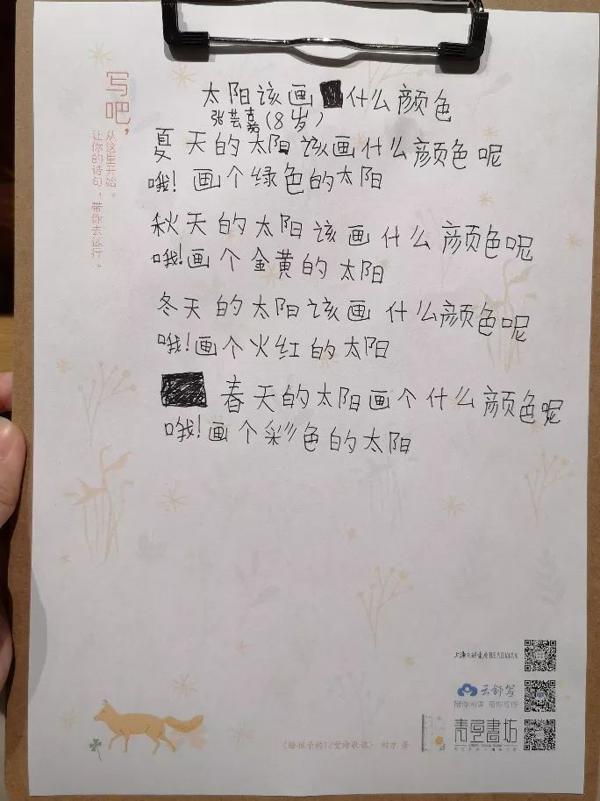 写吧，
从这里开始。
让你的诗句，带你去远行。
太阳该画什么颜色
张芸嘉(8岁)
夏天的太阳该画什么颜色呢
哦!画个绿色的太阳
秋天的太阳该画什么颜色呢
哦!画个金黄的太阳
冬天的太阳该画什么颜色呢
哦!画个火红的太阳
春天的太阳画个什么颜色呢
哦!画个彩色的太阳
云舒写